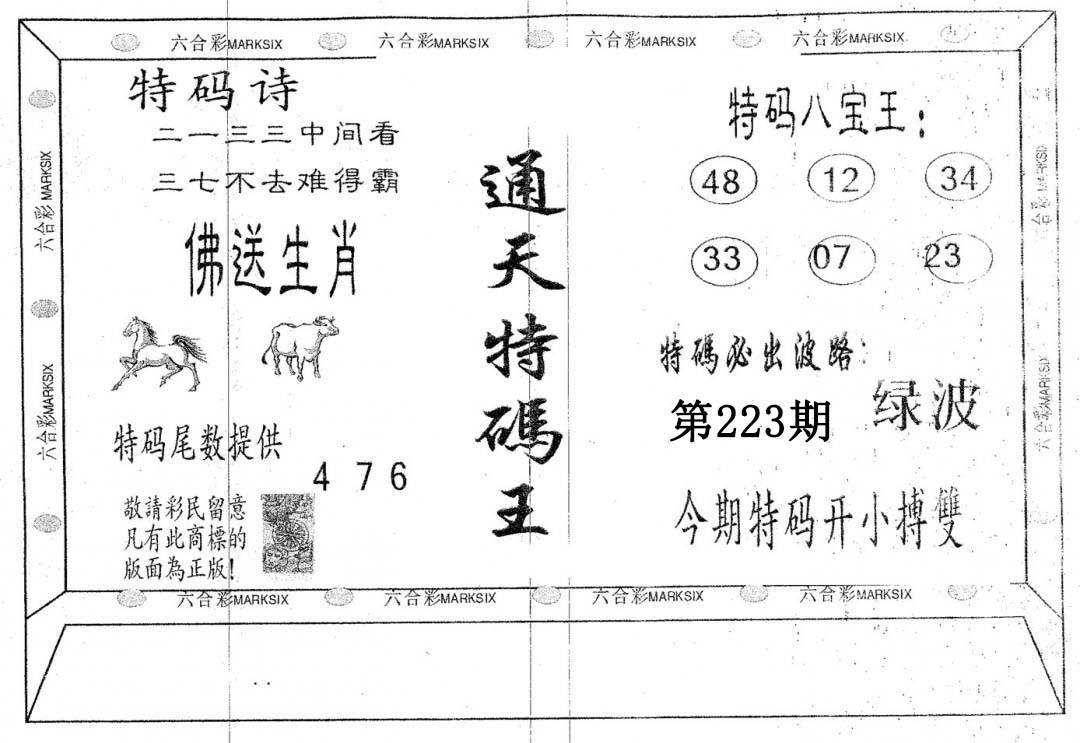 六合彩MARKSIX 六合彩MARKSIX 六合彩MARKSIX 六合彩MARKSIX
六合彩MARKSIX
六合彩MARKSIX
特码诗
二一三三中间看
三七不去难得霸
佛送生肖
特码尾数提供
4 7 6
敬請彩民留意
凡有此商標的
版面為正版!
通天特碼王
特码八宝王:
48 12 34
33 07 23
特碼必出波路:
第223期 绿波
今期特码开小搏雙
六合彩MARKSIX
六合彩MARKSIX
六合彩MARKSIX 六合彩MARKSIX 六合彩MARKSIX 六合彩MARKSIX